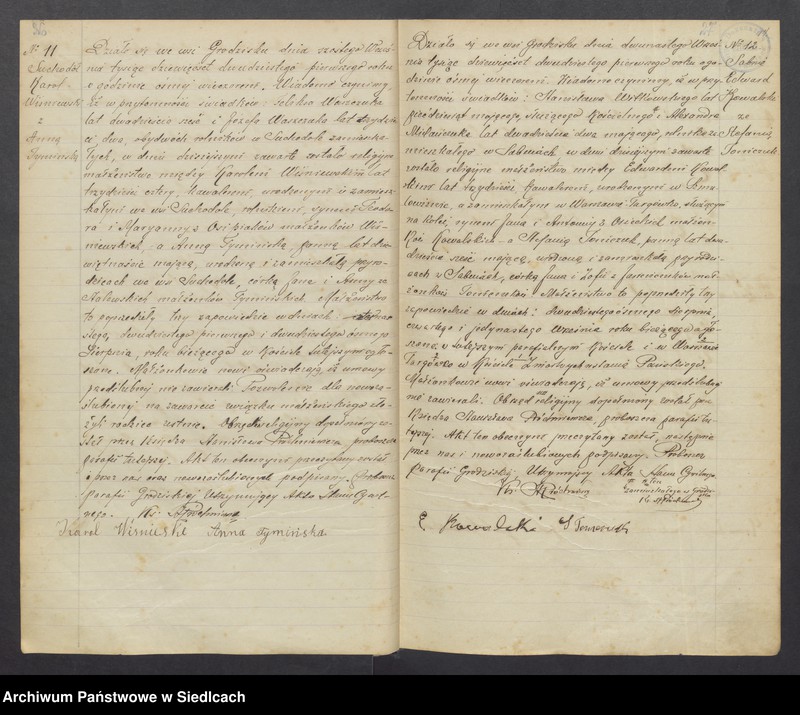 № 11
Suchodół
Karol
Wiśniewski
z
Anną
Tymińską
Działo się we wsi Grodzisku dnia szóstego Wrześ-
nia tysiąc dziewięćset dwudziestego pierwszego roku
o godzinie ósmej wieczorem. Wiadomo czynimy
że w przytomności świadków: Feliksa Waszczuka
lat dwadzieścia sześć i Józefa Waszczuka lat trzydzieś-
ci dwa, obydwóch rolników w Suchodole zamieszka-
łych, w dniu dzisiejszym zawarte zostało religijne
małżeństwo między Karolem Wiśniewskim lat
trzydzieści cztery, kawalerem, urodzonym i zamiesz-
kałym we wsi Suchodole, rolnikiem, synem
i Maryanny z Osipiaków małżonków Wiś-
niewskich, a Anną Tymińską, panną lat dzie-
więtnaście mającą, urodzoną i zamieszkałą przy ro-
dzicach we wsi Suchodole, córką Jana i Anny ze
małżonków Tymińskich. Małżeństwo
to poprzedziły trzy zapowiedzie w dniach:
dwudziestego pierwszego i dwudziestego ósmego
Sierpnia, roku bieżącego w Kościele tutejszym ogło-
szone. Małżonkowie nowi oświadczają, że umowy
przedślubnej nie zawarli. Pozwolenie dla nowoza-
ślubionej na zawarcie związku małżeńskiego zło-
żyli rodzice ustnie. Obrzęd religijny dopełniony zo-
stał przez Księdza Stanisława proboszcza
parafii tutejszej. Akt ten obecnym przeczytany został
i przez nas oraz nowozaślubionych podpisany. Proboszcz
Parafii Grodziskiej Utrzymujący Akta Stanu Cywil-
nego. Ks.
Karol Wiśnieski Anna Tymińska
№ 12
Sabnie
Edward
Kowalski
ze
Stefanią
Tomczuk
Działo się we wsi Grodzisku dnia dwunastego Wrześ-
nia tysiąc dziewięćset dwudziestego pierwszego roku o go-
dzinie ósmej wieczorem. Wiadomo czynimy, że w przy-
tomności świadków: Stanisława Witkowskiego lat
pięćdziesiąt mającego, służącego kościelnego i Alexandra
lat dwadzieścia dwa mającego, rolnika za-
mieszkałego w Sabniach, w dniu dzisiejszym zawarte
zostało religijne małżeństwo między Edwardem Kowal-
skim lat trzydzieści, kawalerem, urodzonym w
a zamieszkałym w Warszawie Targówku, służącym
na kolei, synem Jana i Antoniny z małżon-
ków Kowalskich – a Stefanią Tomczuk, panną lat dwa-
dzieścia sześć mającą, urodzoną i zamieszkałą przy rodzi-
cach w Sabniach, córką Jana i Zofii z mał-
żonków Tomczuków. Małżeństwo to poprzedziły trzy
zapowiedzie w dniach: dwudziestego ósmego Sierpnia,
czwartego i jedynastego Września roku bieżącego ogło-
szone w tutejszym parafialnym Kościele i w Warszawie
Targówku w Kościele Zmartwychwstania Pańskiego.
Małżonkowie nowi oświadczają, że umowy przedślubnej
nie zawierali. Obrzęd religijny dopełniony został przez
Księdza Stanisława proboszcza parafii tu-
tejszej. Akt ten obecnym przeczytany został, następnie
przez nas i nowozaślubionych podpisany. Proboszcz
Parafii Grodziskiej, Utrzymujący Akta Stanu Cywilnego
Ks.
E Kowalski S Tomczuk
Archiwum Państwowe w Siedlcach